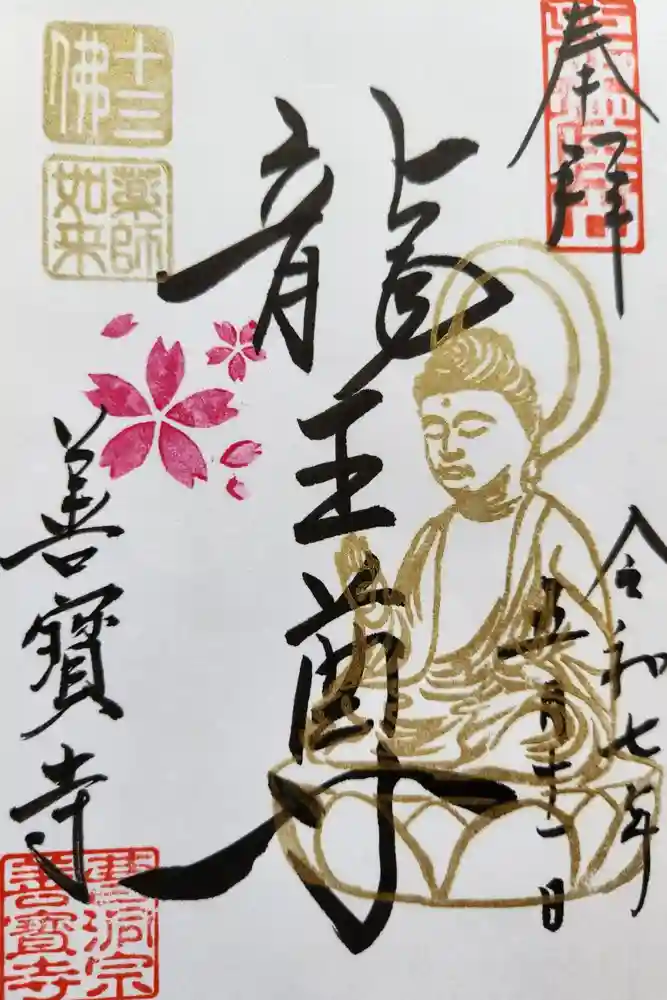 奉拝
令和七年
五月二十一日
龍王尊
十三
佛
薬師
如来
善寳寺
曹洞宗
善寳寺